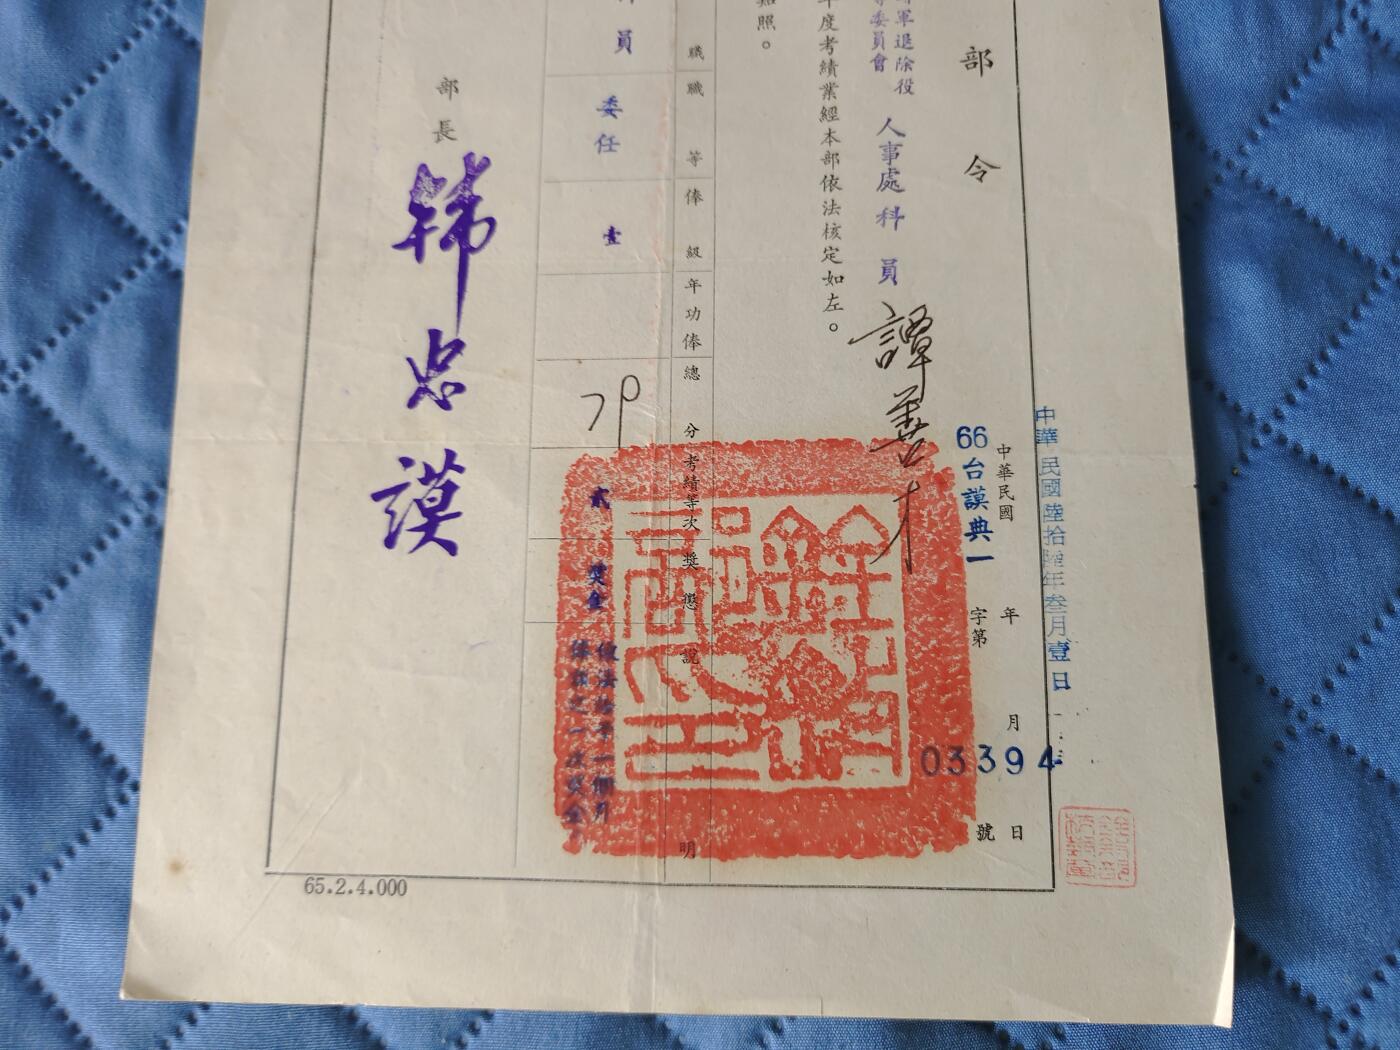 部令
中華民國陸拾陸年叁月壹日
中華民國 年 月 日
66台謨典一字第03394號
軍退除役
委員會
人事處科員譚善才
年度考績業經本部依法核定如左。
照。
職
職等
俸級
年功俸
總分
考績等次
獎懲
說明
員
委任
壹
79
貳
獎金
依法給予一個月
俸額之一次獎金
部長 韓忠謨
65.2.4.000